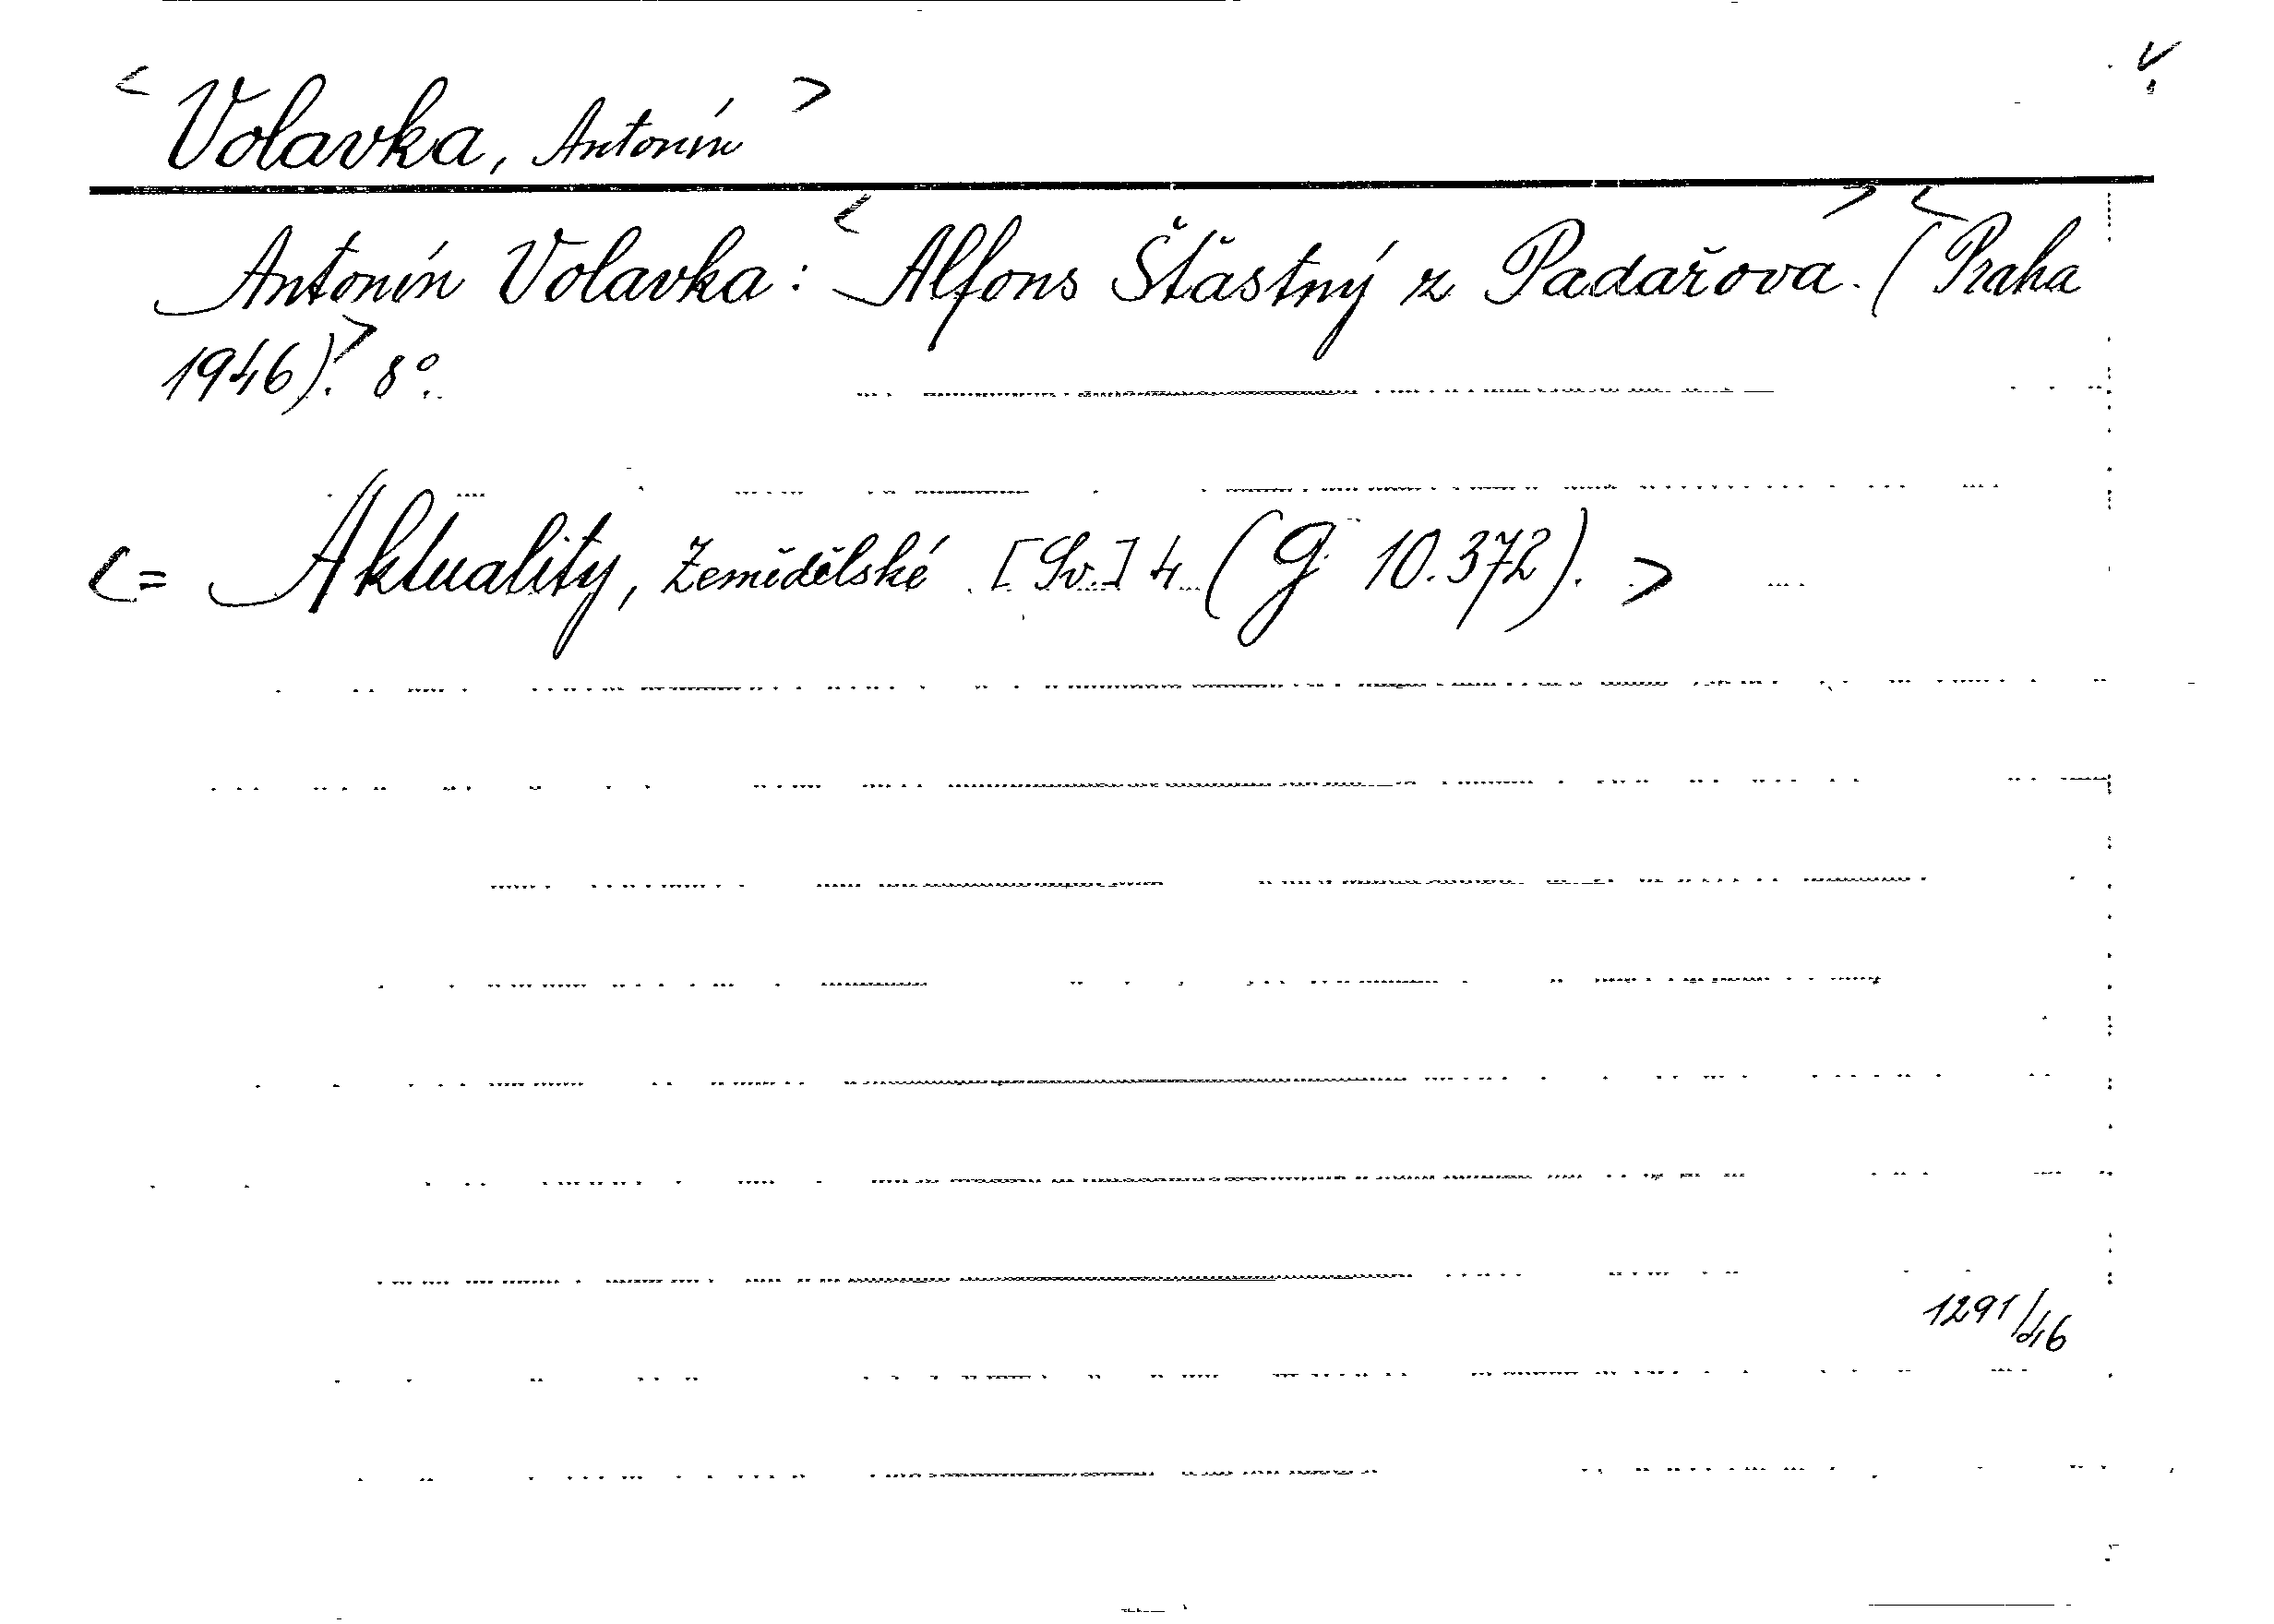 < Volavka, Antonín > V
Antonín Volavka: < Alfons Šťastný z Padařova. > < (Praha
1946). > 8°.
< = Aktuality, Zemědělské [Sv.] 4 (G 10.372). >
1291/46